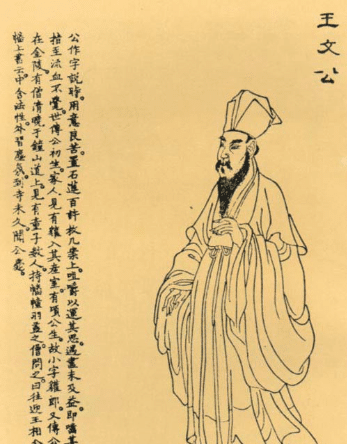 王文公
公作字説時用意良苦置石蓮百許枚几案上咀嚼以運其思遇盡未及益即嚙其
指至流血不覺世傳公初生家人見有獾入其產室有頃公生故小字獾郎又傳公
在金陵有僧清曉于鐘山道上見有童子數人持幡幢羽蓋之僧問之曰往迎王相公
幡上書云中含法性外習塵氛到寺未久聞公薨